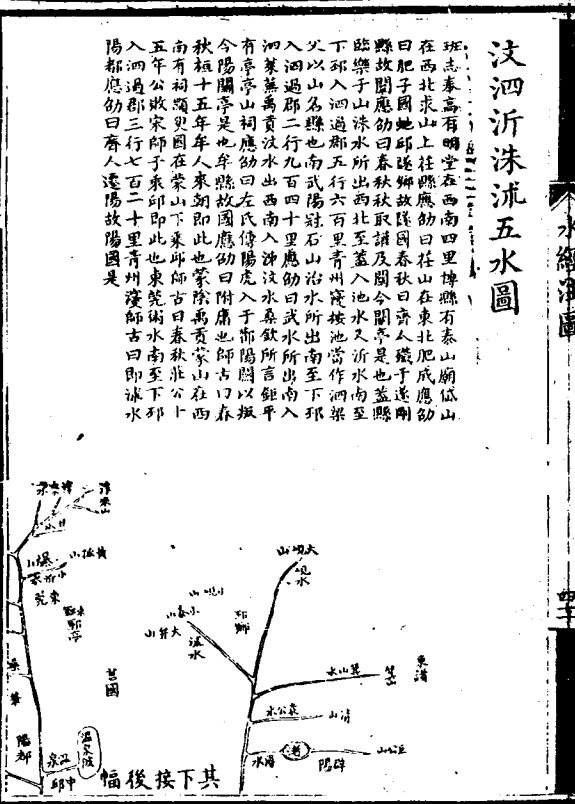 汶泗沂洙沭五水圖
班志奉高有明堂在西南四里博縣有泰山廟岱山
在西北求山上往縣應劭曰往山在東北肥成應劭
曰肥子國虵邱隧鄉故隧國春秋曰齊人殲于遂剛
縣故闡應劭曰春秋秋取讙及闡今闡亭是也蓋縣
臨樂子山洙水所出西北至蓋入池水又沂水南至
下邳入泗過郡五行六百里青州寖按池當作泗梁
父以山名縣也南武陽冠石山治水所出南至下邳
入泗過郡二行九百四十里應劭曰武水所出南入
泗萊蕪禹貢汶水出西南入泲汶水桑欽所言鉅平
有亭亭山祠應劭曰左氏傳陽虎入于讙陽關以叛
今陽關亭是也牟縣故國應劭曰附庸也師古曰春
秋桓十五年牟人來朝即此也蒙陰禹貢蒙山在西
南有祠顓臾國在蒙山下乘邱師古曰春秋莊公十
五年公敗宋師于乘邱即此也東莞術水南至下邳
入泗過郡三行七百二十里青州寖師古曰即沭水
陽都應劭曰齊人遷陽故陽國是
水經注圖
大峴山
峴水
小峴山
小泰山
大弁山
邳鄉
箕山水
箕山
東莞
袁公水
清山
潯水
碑陽
黃孤山
爆山
東莞
鄆亭
莒國
桑
陽都
溫泉
溫泉陂
中邱
其下接後幅